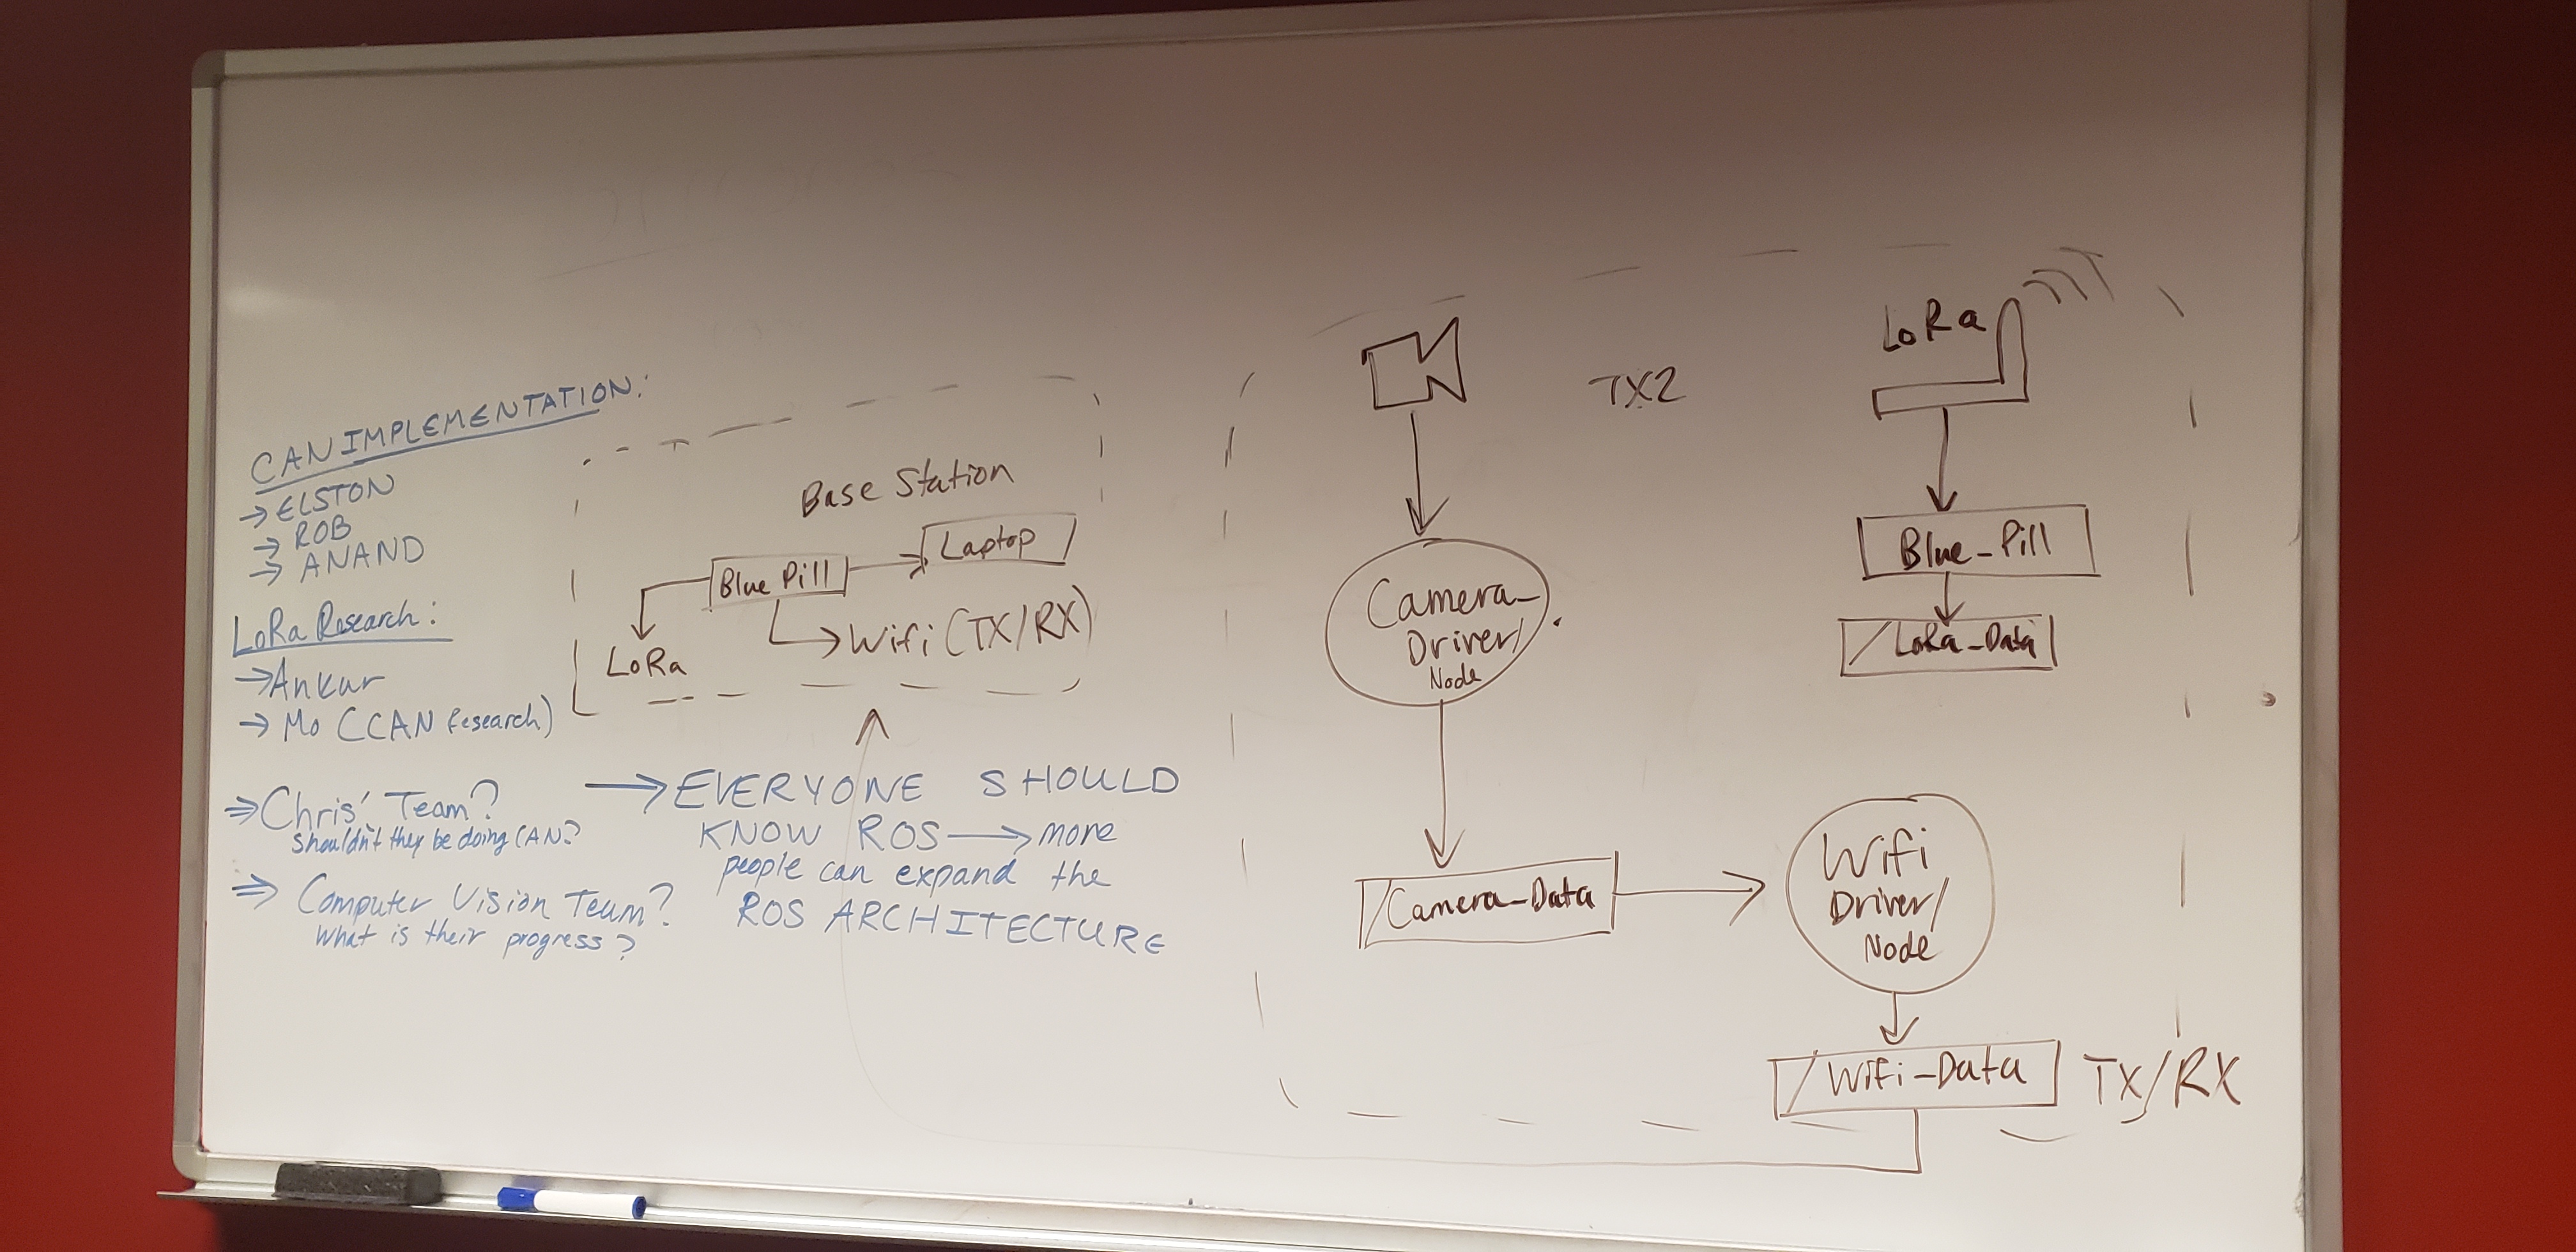 CAN IMPLEMENTATION:
→ ELSTON
→ ROB
→ ANAND
LoRa Research:
→ Ankur
→ Mo (CAN Research)
⇒ Chris' Team?
Shouldn't they be doing CAN?
⇒ Computer Vision Team?
What is their progress?
Base Station
Laptop
Blue Pill
Wifi (TX/RX)
LoRa
→ EVERYONE SHOULD
KNOW ROS → more
people can expand the
ROS ARCHITECTURE
TX2
Camera_
Driver/
Node
/Camera_Data
LoRa
Blue_Pill
/LoRa_Data
Wifi
Driver/
Node
/Wifi-Data
TX/RX